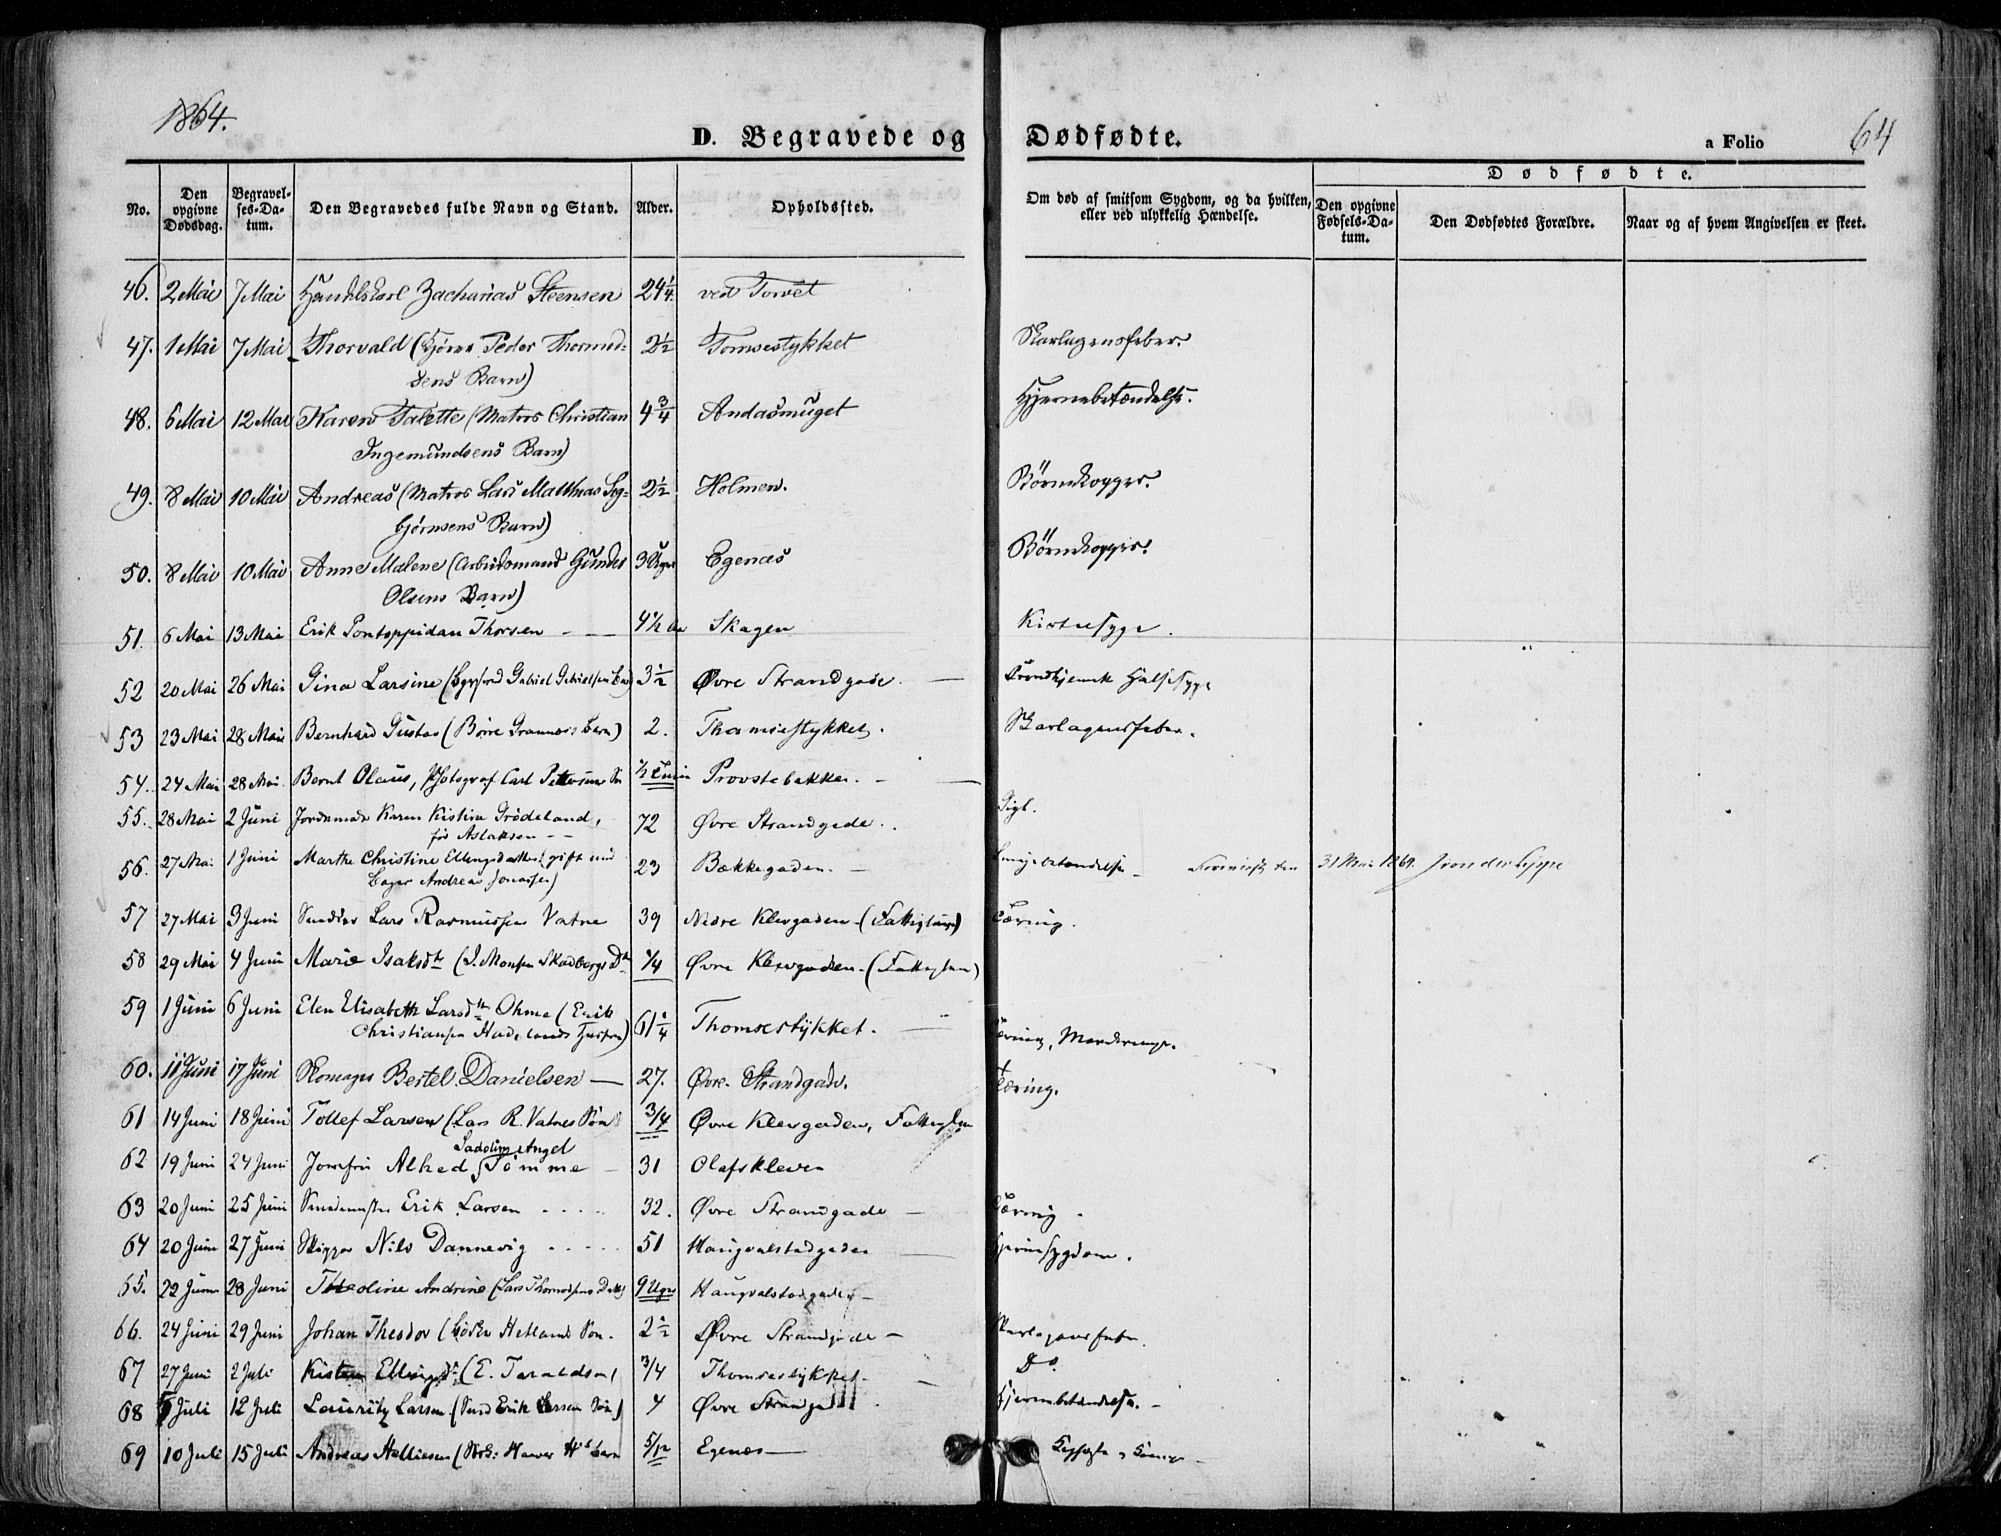 1864.
D. Begravede og Dødfødte.
a Folio 64
No.
Den opgivne Dødsdag.
Begravelses-Datum.
Den Begravedes fulde Navn og Stand.
Alder.
Opholdssted.
Om død af smitsom Sygdom, og da hvilken, eller ved ulykkelig Hændelse.
Dødfødte.
Den opgivne Fødsels-Datum.
Den Dødfødtes Forældre.
Naar og af hvem Angivelsen er skeet.
46. 2 Mai 7 Mai Handelskarl Zacharias Steensen 24 1/4 ved Torvet
47. 1 Mai 7 Mai Thorvald (Peder Thormod- 2 1/2 Tomsestykket Skarlagensfeber.
sens Barn)
48. 6 Mai 12 Mai Karen Talette (Matros Christian 4 3/4 Andasmuget Hjernebetændelse.
Ingemundsens Barn)
49. 8 Mai 10 Mai Andreas (Matros Lars Matthias Seg- 2 1/2 Holmen. Børnekopper.
bjørnsens Barn)
50. 8 Mai 10 Mai Anne Malene (Arbeidsmand Gunder 3 Uger Egenæs Børnekopper.
Olsens Barn)
51. 6 Mai 13 Mai Erik Pontoppidan Thorsen 4 1/2 Skagen Kirtelsyge.
52 20 Mai 26 Mai Gina Larsine (Gabriel Gabrielsens 3 1/2 Øvre Strandgade. Halssyge
53 23 Mai 28 Mai Bernhard Gustav (Børre Barn) 2. Thomsestykket. Skarlagensfeber.
54. 24 Mai 28 Mai Bernt Olaus, Photograf Carl Petersens Søn 1/2 Provstebakken.
55. 28 Mai 2 Juni Jordemoder Karen Kistine Grødeland, 72 Øvre Strandgade. Gigt.
fød Aslaksen
56. 27 Mai 1 Juni Marthe Christine Ellingsdatter (gift med 23 Bækkegaden. Lungebetændelse 31 Mai 1864.
Bager Andreas Jonassen)
57 27 Mai 3 Juni Lars Rasmussen Vatne 39 Nedre Klevgaden (Fattiglem) Tæring.
58 29 Mai 4 Juni Marie Isaksdtr (I. Monsen Skadbergs Dtr 1/4 Øvre Klevgaden (Fattiglem)
59 1 Juni 6 Juni Elen Elisabeth Larsdtr Ohme (Erik 61 1/4 Thomsestykket. Tæring,
Christiansen Hadelands Hustru)
60. 11 Juni 17 Juni Skomager Bertel Danielsen 27. Øvre Strandgade. Tæring.
61 14 Juni 18 Juni Tollef Larsen (Lars R. Vatnes Søn 3/4 Øvre Klevgaden, Fattiglem
Sadolin Angel
62 19 Juni 24 Juni Jomfru Alhed Tømme 31 Olafskleven
63 20 Juni 25 Juni Erik Larsen 32. Øvre Strandgade Tæring
64 20 Juni 27 Juni Skipper Nils Dannevig 51 Haugvalstadgaden
65. 22 Juni 28 Juni Theoline Andrine (Lars Thormodsens Datter) 9 Uger Haugvalstadgaden
66. 24 Juni 29 Juni Johan Theodor ( Hetlands Søn. 2 1/2 Øvre Strandgade Skarlagensfeber.
67 27 Juni 2 Juli Kisten Ellingsdtr (E. Taraldsen) 3/4 Thomsestykket Do.
68 5 Juli 12 Juli Lauritz Larsen (Erik Larsens Søn) 4 Øvre Strandgade Hjernebetændelse.
69 10 Juli 15 Juli Andreas Helliesen ( Barn 5/12 Egenæs